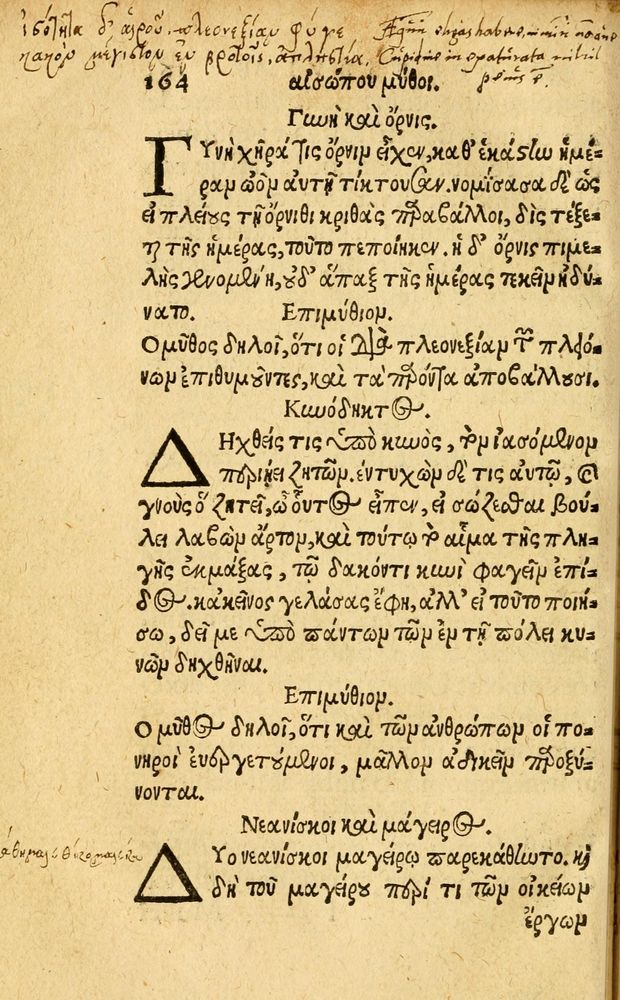 ἰσότητα δ' αἱροῦ, πλεονεξίαν φύγε
κακὸν μέγιστον ἐν βροτοῖς, ἀπληστία.
164 αἰσώπου μῦθοι.
Γυνὴ καὶ ὄρνις.
ΓΥνὴ χήρα τὶς ὄρνιμ εἶχεν, καθ' ἑκάστην ἡμέ-
ραμ ὠὸμ αὐτῇ τίκτουσαν. νομίσασα δὲ ὡς
εἰ πλείους τῇ ὄρνιθι κριθὰς προβάλλοι, δὶς τέξε-
ται τῆς ἡμέρας, τοῦτο πεποίηκεν. ἡ δ' ὄρνις πιμε-
λὴς γενομένη, οὐδ' ἅπαξ τῆς ἡμέρας τεκεῖμ ἠδύ-
νατο. Επιμύθιομ.
Ο μῦθος δηλοῖ, ὅτι οἱ διὰ πλεονεξίαμ τῶν πλειό-
νωμ ἐπιθυμοῦντες, καὶ τὰ προόντα ἀποβάλλουσι.
Κυνόδηκτος.
ΔΗχθείς τις ὑπὸ κυνὸς, τὸμ ἰασόμενομ
περιῄει ζητῶμ. ἐντυχὼμ δέ τις αὐτῷ, καὶ
γνοὺς ὃ ζητεῖ, ὦ οὗτος εἶπεν, εἰ σώζεσθαι βού-
λει λαβὼμ ἄρτομ, καὶ τούτῳ τὸ αἷμα τῆς πλη-
γῆς ἐκμάξας, τῷ δακόντι κυνὶ φαγεῖμ ἐπί-
δος. κἀκεῖνος γελάσας ἔφη, ἀλλ' εἰ τοῦτο ποιή-
σω, δεῖ με ὑπὸ πάντωμ τῶμ ἐμ τῇ πόλει κυ-
νῶμ δηχθῆναι.
Επιμύθιομ.
Ο μῦθος δηλοῖ, ὅτι καὶ τῶμ ἀνθρώπωμ οἱ πο-
νηροὶ εὐεργετούμενοι, μᾶλλομ ἀδικεῖμ προξύ-
νονται.
Νεανίσκοι καὶ μάγειρος.
ΔΥο νεανίσκοι μαγείρῳ παρεκάθηντο. καὶ
δὴ τοῦ μαγείρου περί τι τῶμ οἰκείωμ
ἔργωμ